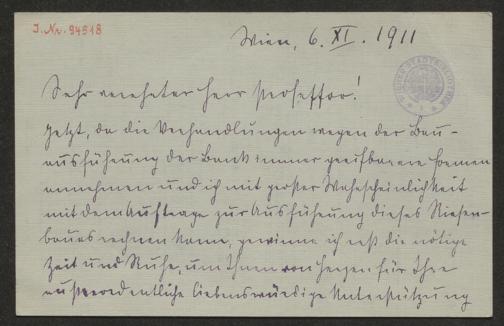 J. Nr. 94518
Wien, 6. XI. 1911
Sehr verehrter Herr Professor!
Jetzt, da die Verhandlungen wegen der Bau-
ausführung der Bank immer greifbarere Formen
annehmen und ich mit großer Wahrscheinlichkeit
mit dem Auftrage zur Ausführung dieses Riesen-
baues rechnen kann, gewinne ich erst die nötige
Zeit und Ruhe, um Ihnen von Herzen für Ihre
außerordentliche liebenswürdige Unterstützung